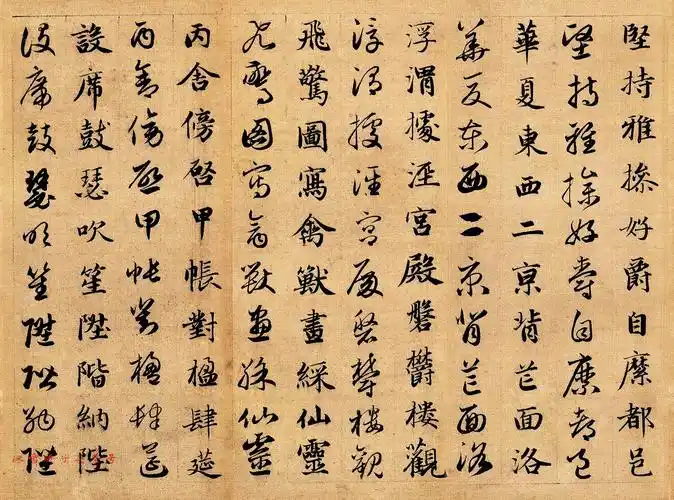 堅持雅操好爵自縻都邑
堅持雅操好爵自縻都邑
華夏東西二京背芒面洛
華夏東西二京背芒面洛
浮渭據涇宮殿磐欝樓觀
浮渭據涇宮殿磐欝樓觀
飛驚圖寫禽獸畫綵仙靈
飛驚圖寫禽獸畫綵仙靈
丙舍傍啓甲帳對楹肆筵
丙舍傍啓甲帳對楹肆筵
設席鼓瑟吹笙陞階納陛
設席鼓瑟吹笙陞階納陛